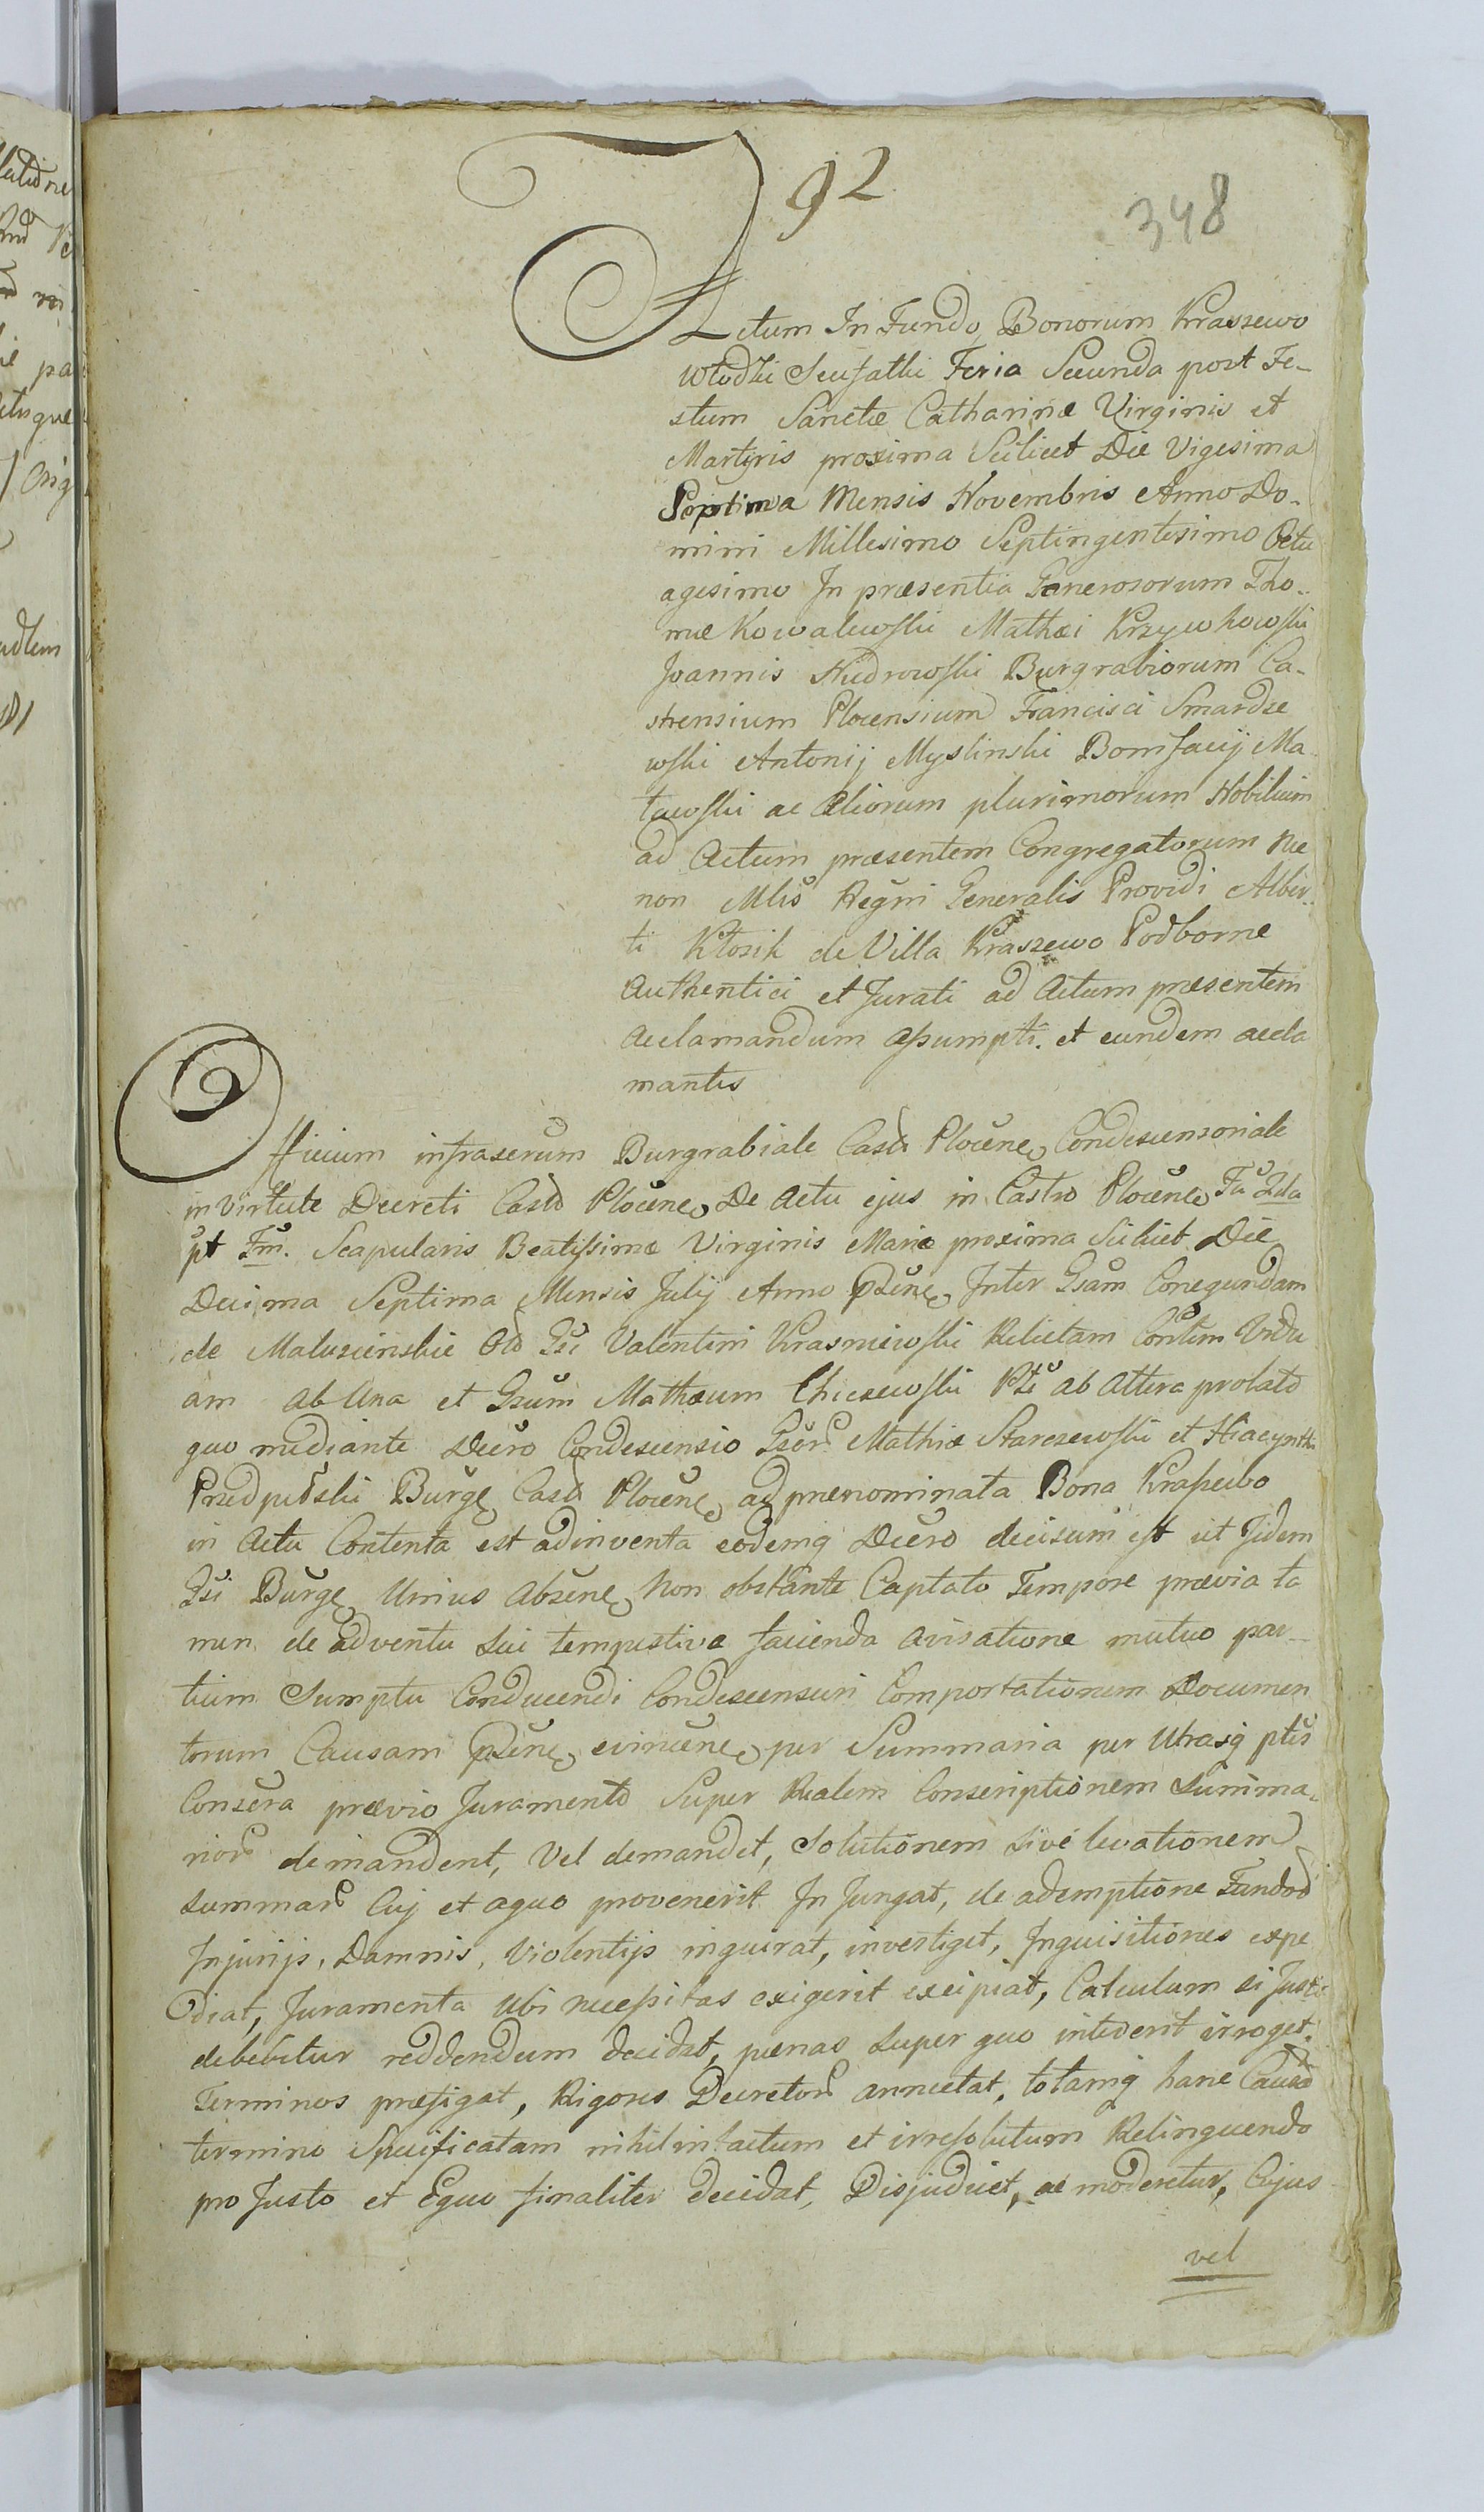 92
348
Actum In Fundo Bonorum Kraszewo
Włodki Seu Jatki Feria Secunda post Fe-
stum Sanctæ Catharinæ Virginis et
Martyris proxima Scilicet Die Vigesima
Septima Mensis Novembris Anno Do-
mini Millesimo Septingentesimo Octu
agesimo In præsentia Generosorum Tho-
mæ Kowalewski Mathæi Krzywkowski
Joannis Nidrowski Burgrabiorum Ca-
strensium Plocensium Francisci Smardze
wski Antonij Myslinski Bonifacij Ma
towski ac Aliorum plurimorum Nobilium
ad Actum præsentem Congregatorum Nec
non Mlis Regni Generalis Providi Alber-
ti Kłosik de Villa Kraszewo Podborne
Authentici et Jurati ad Actum præsentem
Acclamandum assumpti. et eundem accla
mantis
Officium infrascrum Burgrabiale Castr Plocen Condescensoriale
in virtute Decreti Castr Plocen De Actu ejus in Castro Plocen Fa 2da
pt Fm. Scapularis Beatissimæ Virginis Mariæ proxima Scilicet Die
Decima Septima Mensis Julij Anno Præn Inter Gsam Conegundam
de Maluszinskie Gsi Valentini Krasniewski Relictam Vidu
am ab Una et Gsum Mathæum Chiczewski ab Altera prolato
quo mediante Decro Condescensio Gsor Mathiæ Starczewski et Hiacynthi
Przedpełski Burg Castr Plocen ad prænominata Bona Krassewo
in Actu Contenta est adinventa eodemq Decro decisum est ut Jidem
Gsi Burg Unius Absen non obstante Captato Tempore prævia ta
men de adventu Sui tempestive facienda avisatione mutuo par-
tium Sumptu Conducendi Condescensuri Comportationem Documen
torum Causam Præn evincen per Summaria per Utrasq ptes
Conscra prævio Juramento Super Realem Conscriptionem Summa-
rior demandent, Vel demandet, Solutionem sive levationem
summar Cuj et aquo provenerit In Jungat, de ademptione Fundor
Injurijs, Damnis, Violentijs inquirat, investiget, Inquisitiones expe
diat, Juramenta ubi necessitas exigerit excipiat, Calculum si Justi
debebitur reddendum decidat, pænas super quo inciderit irroget,
Terminos præfigat, Rigores Decretor annectat, totamq hanc Causam
termino Specificatam nihil intactum et irresolutum Relinquendo
pro Justo et Equo finaliter decidat, Disjudicet, ac moderetur, Cujus
vel